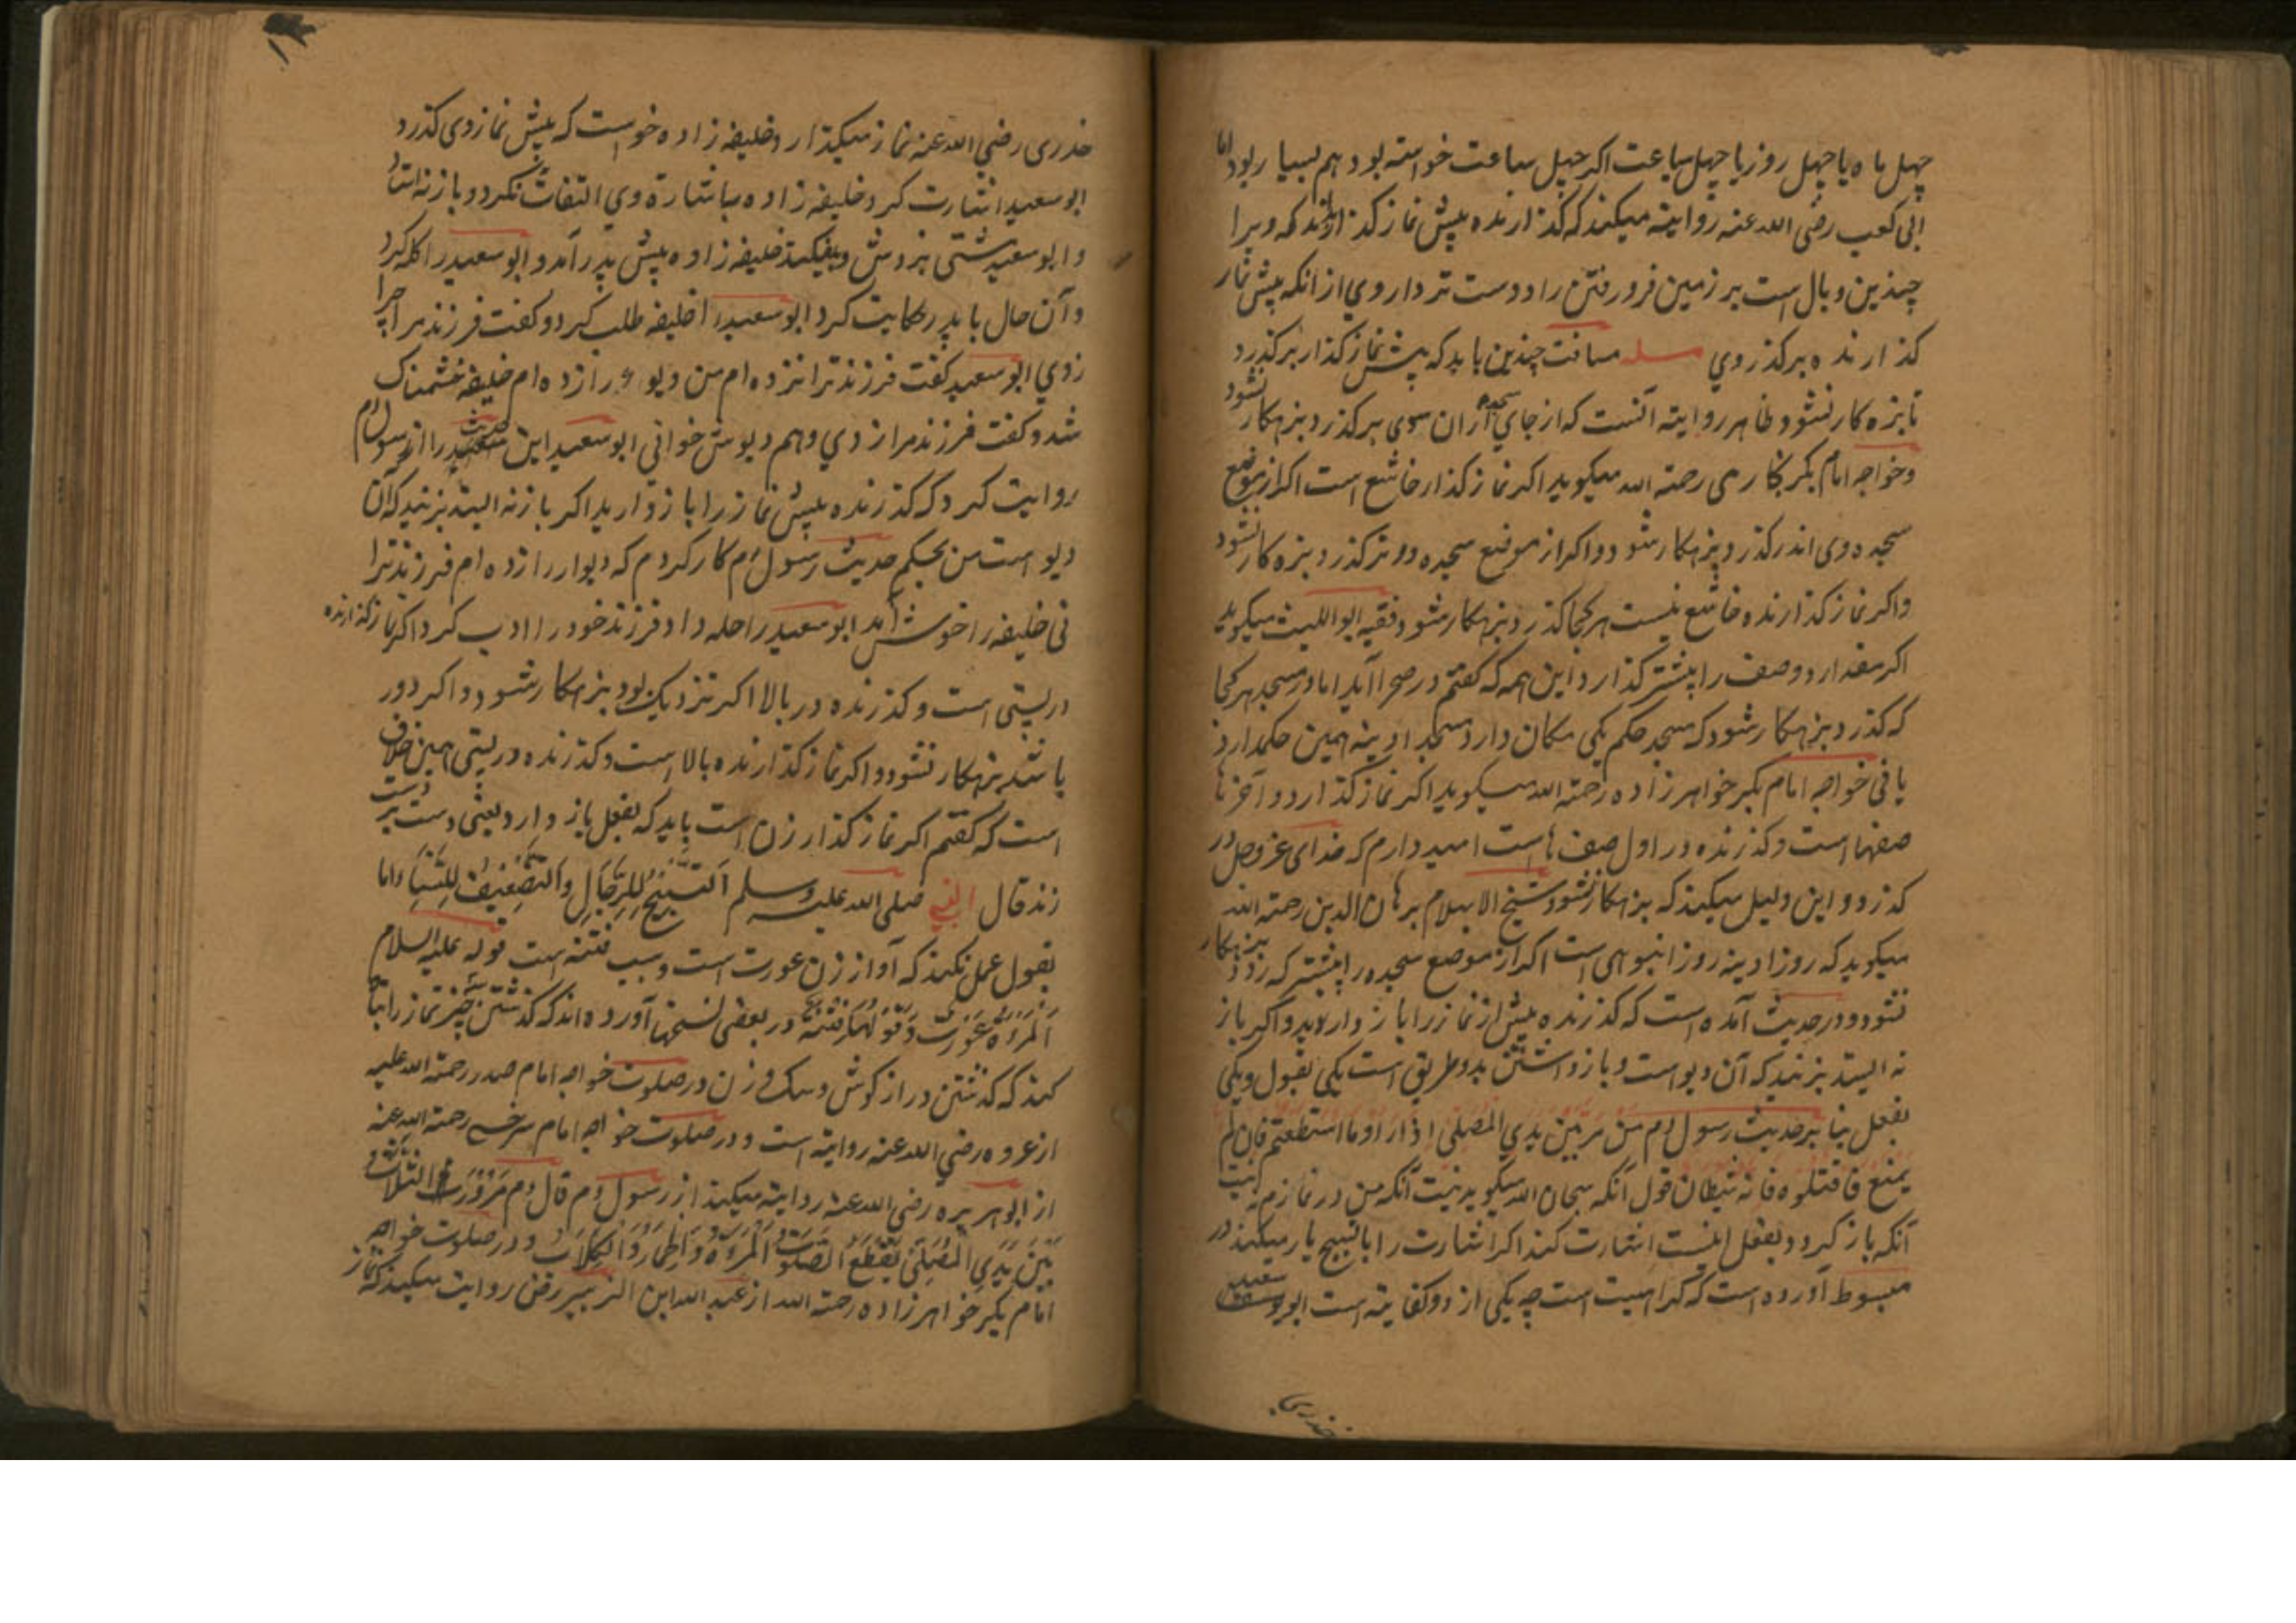 چهل ماه یا چهل روز یا چهل ساعت اکر چهل ساعت خواسته بود هم بسیار بود اما
ابی کعب رضی الله عنه روایته میکند که کذارنده پیش نماز کذار بداند که ویرا
چندین وبال است بر زمین فرو رفتن را دوست تر دار وي از انکه پیش نماز
کذارنده بر کذر وي مسله مسافت چندین باید که پیش نماز کذار بر کذرد
تا بزه کار نشود ظاهر روایته آنست که از جاي سجده ازان سوی بر کذرد بزهکار نشود
وخواجه امام بکر رحمته الله میکوید اکر نماز کذار خاشع است اکر از موضع
سجده وی اندر کذرد بزهکار شود واکر از موضع سجده دورتر کذرد بزه کار نشود
واکر نماز کذارنده خاشع نیست هر کجا کذرد بزهکار شود وفقیه ابو اللیث میکوید
اکر مقدار دو صف را پیشتر کذارد این همه که کفتم در صحرا آید اما در مسجد هر کجا
که کذرد بزهکار شود که مسجد حکم یکی مکان دارد مسجد ادینه همین حکم دارد
یا فی خواجه امام بکر خواهرزاده رحمته الله میکوید اکر نماز کذارد و آخر
صفها است وکذرنده در اول صف است امید دارم که خدای عز وجل در
کذرد واین دلیل میکند که بزهکار نشود وشیخ الاسلام برهان الدین رحمته الله
میکوید که روز ادینه روز انبوهی است اکر از موضع سجده را پیشتر که رود بزهکار
نشود ودر حدیث آمده است که کذرنده پیش از نماز را باز دارید واکر باز
نه ایستد بزنید که آن دیو است وباز داشتن بدو طریق است یکی بقول ویکی
بفعل بنا بر حدیث رسول م من مر بین یدي المصلی اذ ار اوما استطعتم فان لم
یمنع فاقتلوه فانه شیطان قول آنکه سبحان الله میکوید نیت آنکه من در نمازم نه نیت
آنکه باز کیرد وبفعل اینست اشارت کند اکر اشارت را با تسبیح یار میکند در
مبسوط آورده است که کراهیت است چه یکی از دو کفایته است ابو سعید
خدری
خدری رضي الله عنه نماز میکذارد وخلیفه زاده خواست که پیش نماز وی کذرد
ابو سعید اشارت کرد خلیفه زاده باشارة وي التفات نکرد وباز نه استاد
وابو سعید مشتی بزدش وبفیکند خلیفه زاده پیش پدر آمد وابو سعید را کله کرد
وآن حال با پدر حکایت کرد ابو سعید را خلیفه طلب کرد وکفت فرزند مرا چرا
زدي ابو سعید کفت فرزند ترا نزده ام من دیو را زده ام خلیفه خشمناک
شد وکفت فرزند مرا زدي وهم دیوش خوانی ابو سعید این حدیث را از رسول م
روایت کرد که کذرنده پیش نماز را باز دارید اکر باز نه ایستد بزنید که آن
دیو است من بحکم حدیث رسول م کار کردم که دیوار را زده ام فرزند ترا
نی خلیفه را خوش آمد ابو سعید را حله داد وفرزند خود را ادب کرد اکر نماز کذارنده
در پستی است وکذرنده در بالا اکر نزدیک بود بزهکار شود واکر دور
باشد بزهکار نشود واکر نماز کذارنده بالا است وکذرنده در پستی همین خلاف
است که کفتم اکر نماز کذار زن است باید که بفعل باز دارد یعنی دست بر دست
زند قال النبي صلی الله علیه وسلم اَلتَّسْبِیحُ لِلرِّجَالِ وَالتَّصْفِیقُ لِلنِّسَاءِ واما
بقول عمل نکند که آواز زن عورت است وسبب فتنه است قوله علیه السلام
اَلْمَرْءَةُ عَوْرَتٌ وَقَوْلُهَا فِتْنَةٌ در بعضی نسختها آورده اند که کذشتن سه چیز نماز را تباه
کند که کذشتن دراز کوش وسک وزن در صلوت خواجه امام صدر رحمته الله علیه
از عروه رضي الله عنه روایته است ودر صلوت خواجه امام سرخسی رحمته الله عنه
از ابو هریره رضی الله عنه روایته میکند از رسول م قال م مُرُوْرُ الثَّلَاثِ
بَیْنَ یَدَيِ الْمُصَلِّي یَقْطَعُ الصَّلٰوتَ اَلْمَرْءَةُ وَالْحِمَارُ وَالْکِلَابُ ودر صلوت خواجه
امام بکر خواهرزاده رحمته الله از عبد الله ابن الزبیر رض روایت میکند که نماز